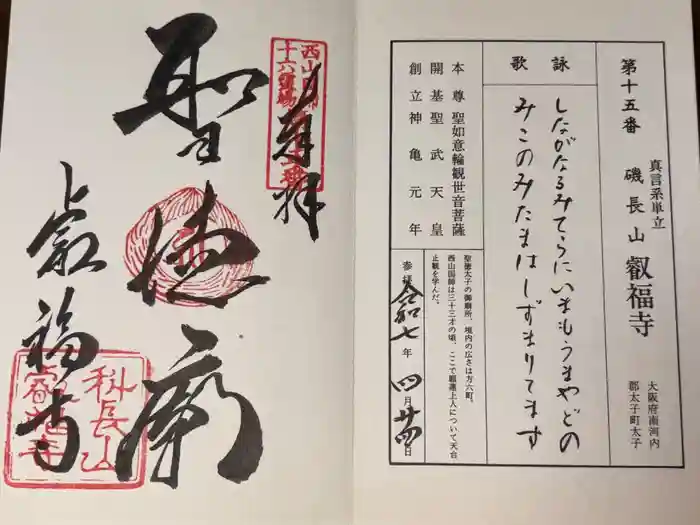 第十五番
真言系単立
磯長山 叡福寺
大阪府南河内
郡太子町太子
詠歌
しながなるみてらにいまもうまやどの
みこのみたまはしずまりてます
本尊 聖如意輪観世音菩薩
開基 聖武天皇
創立 神亀元年
聖徳太子の御廟所、境内の広さは方六町。
西山国師は三十三才の頃、ここで願蓮上人について天台
止観を学んだ。
参拝 令和七年四月廿四日
奉拝
西山国師
十六霊場
聖徳廟
叡福寺
科長山